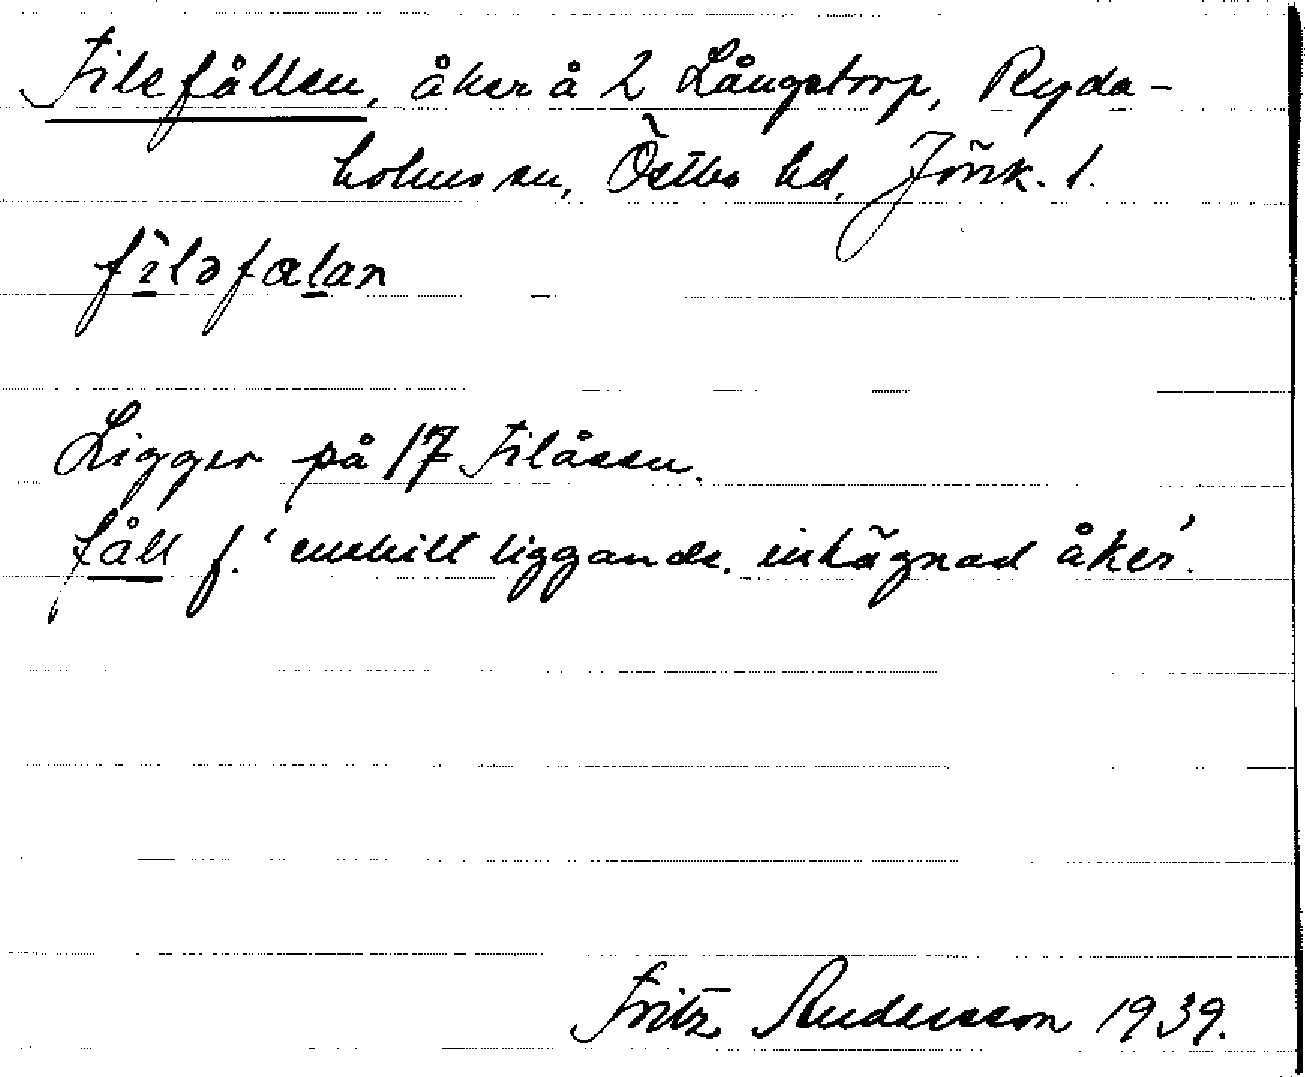 Filefållen, åker å 2 Långstorp, Ryda-
holms sn, Östbo hd, Jönk. l.
filəfalan
Ligger på 17 Filåsen.
fåll f. 'enskilt liggande, inhägnad åker'.
Fritz Andersson 1939.